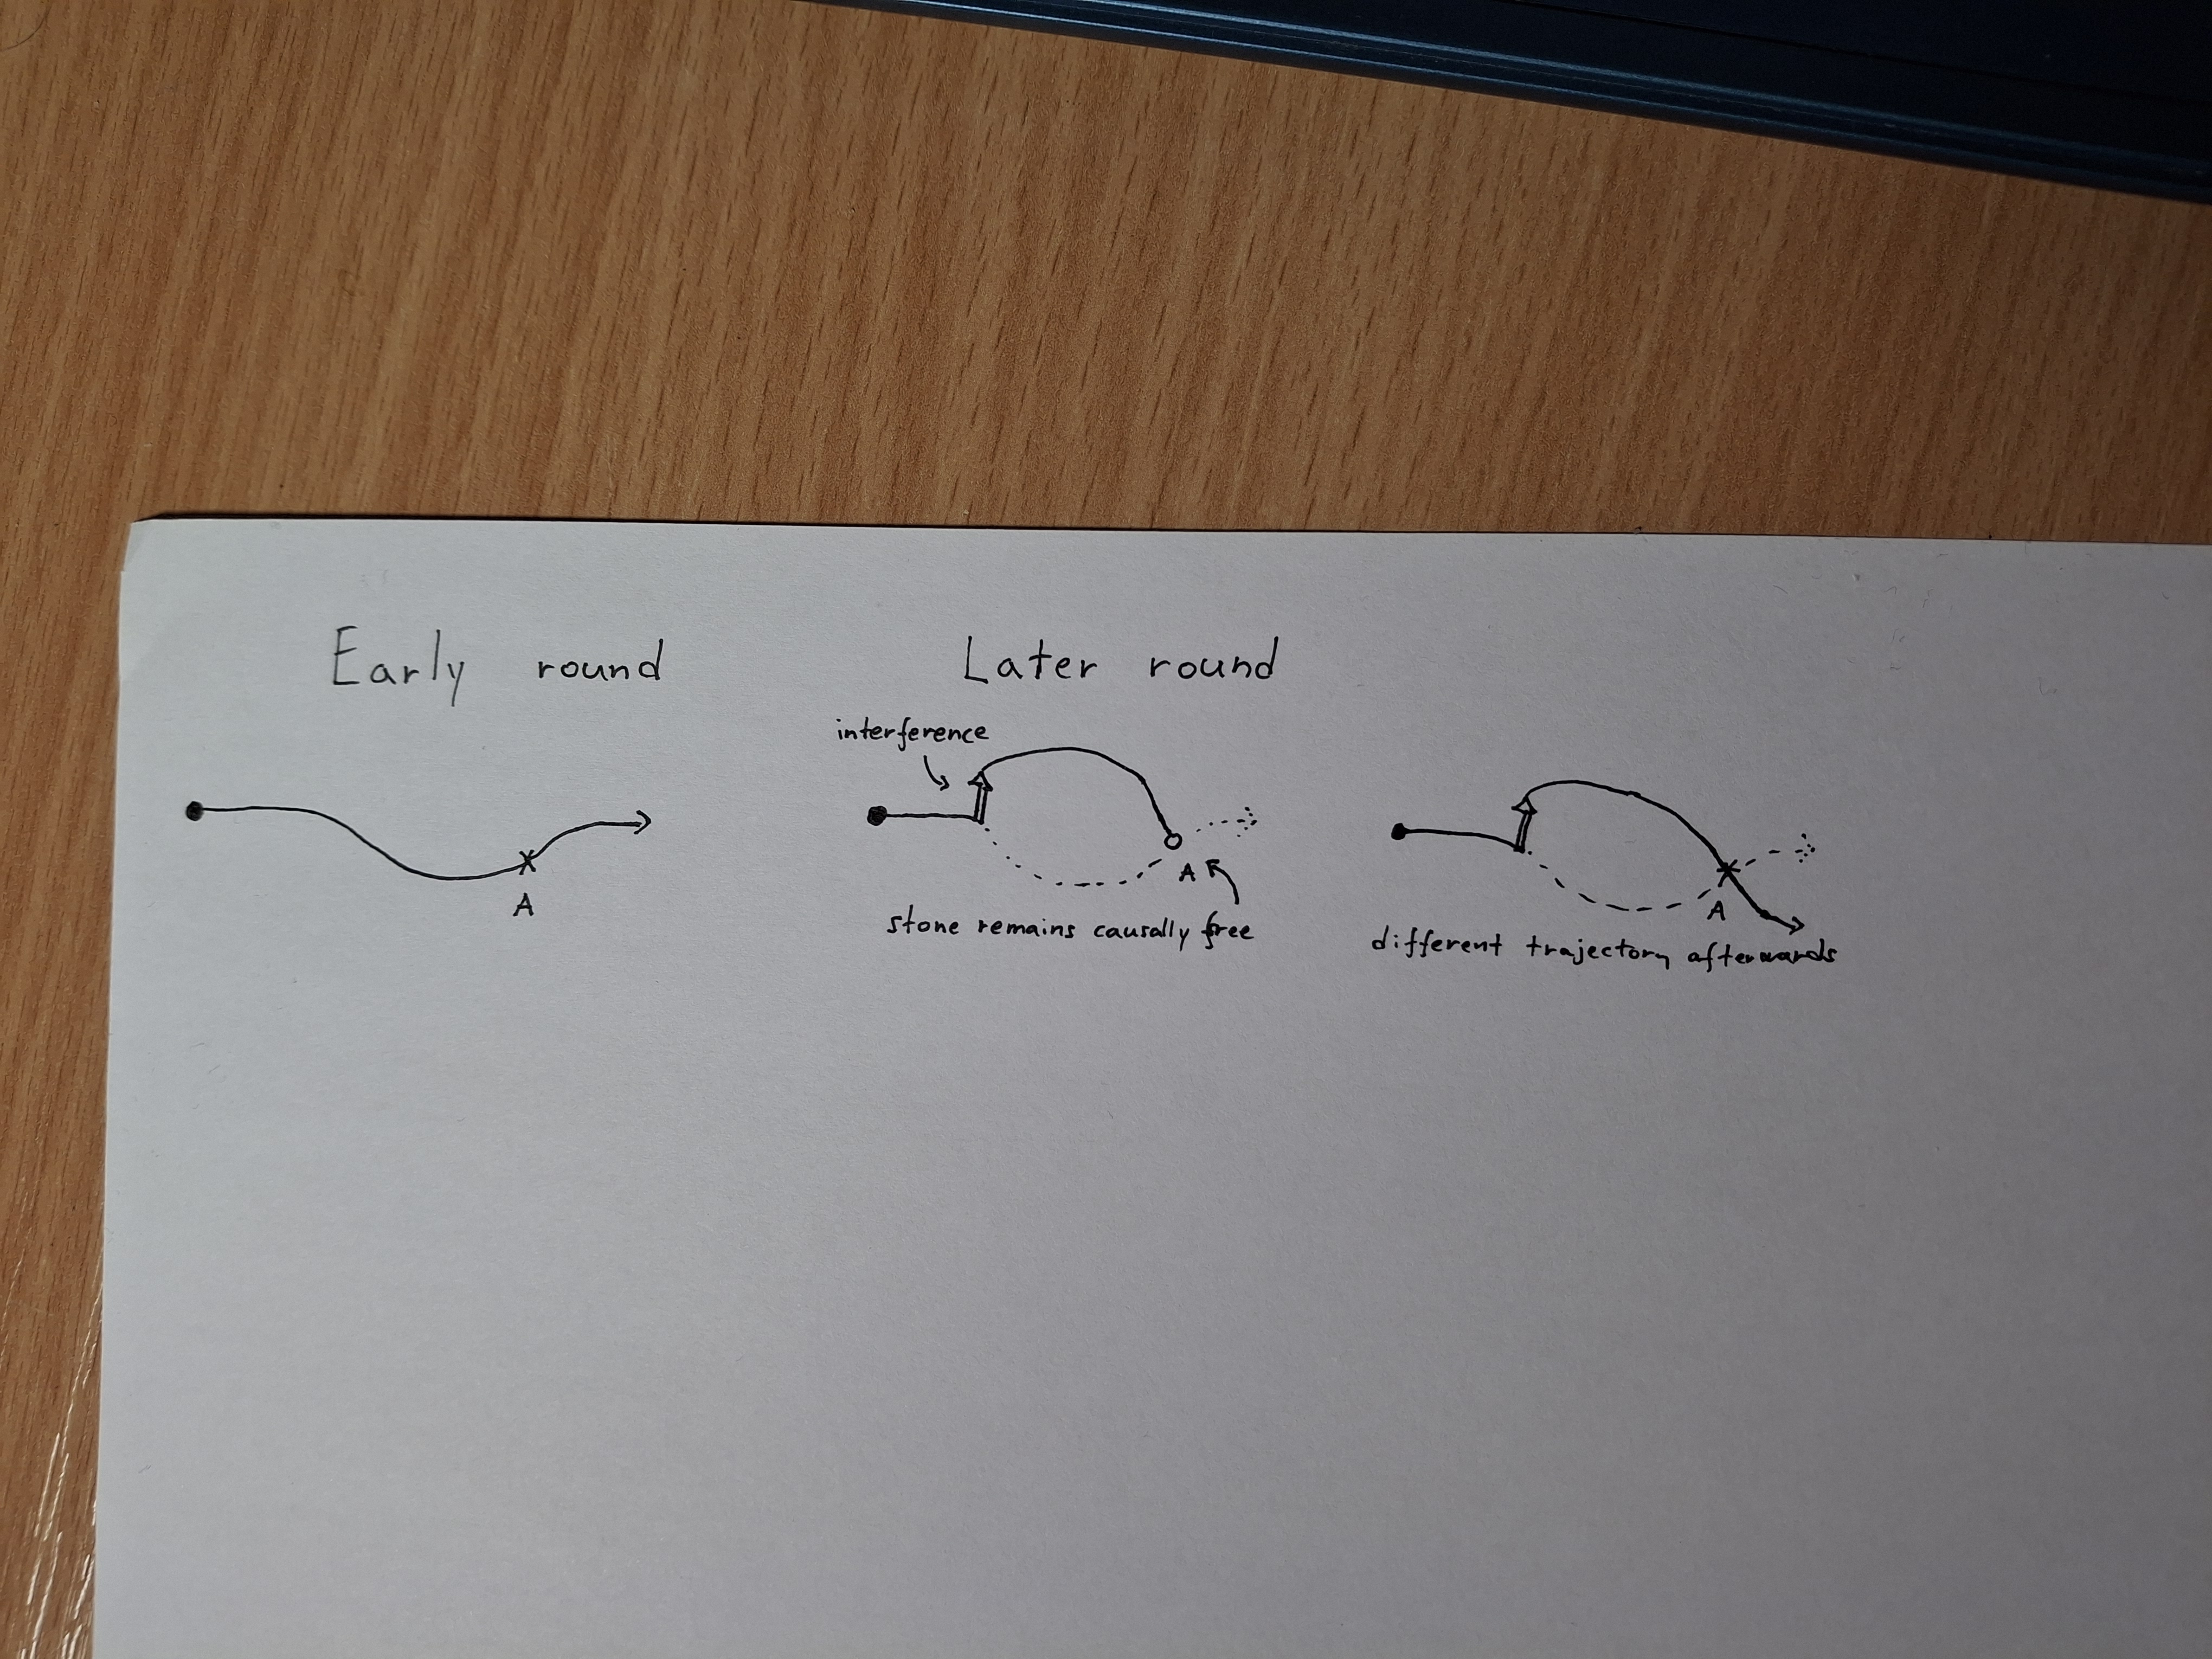 Early round
A
Later round
interference
A
stone remains causally free
A
different trajectory afterwards